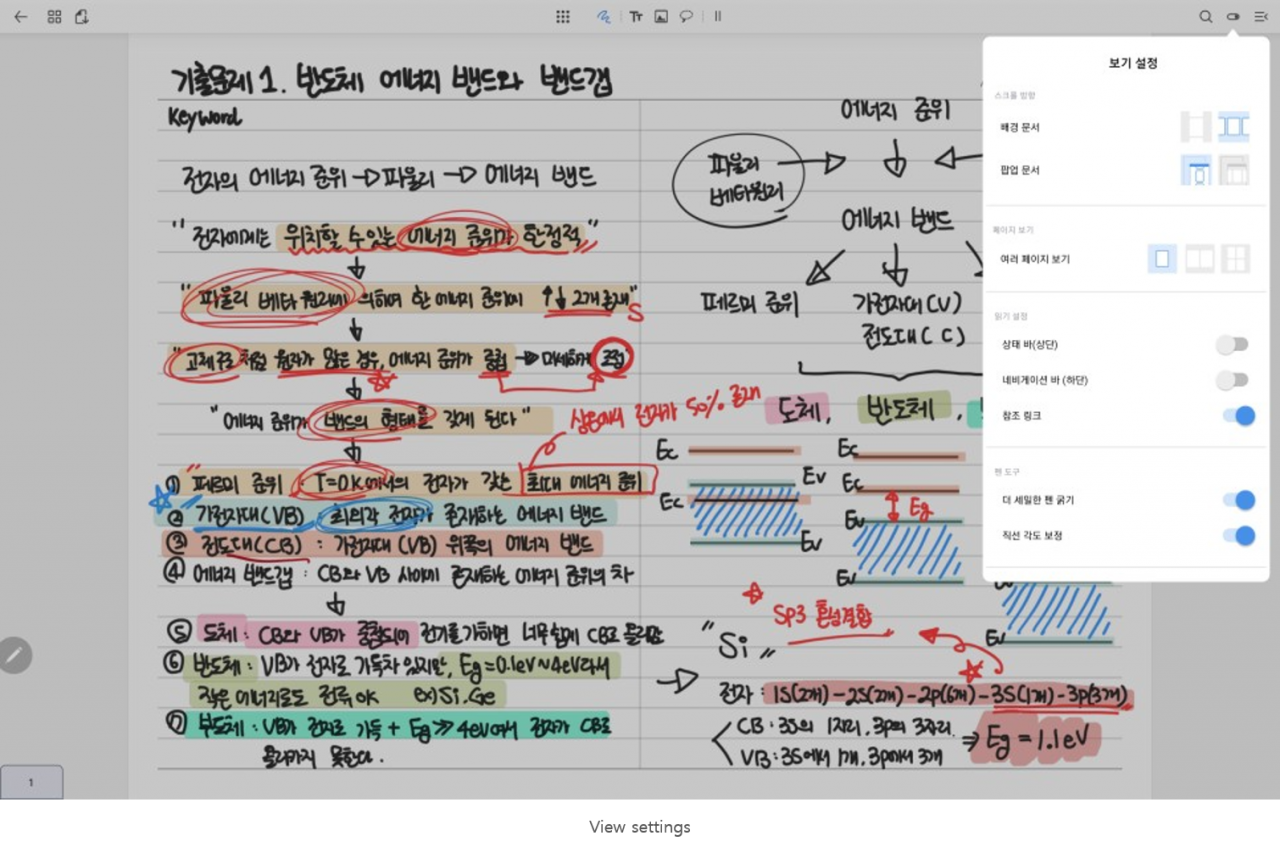 기출문제 1. 반도체 에너지 밴드와 밴드갭
Keyword
전자의 에너지 준위 → 파울리 → 에너지 밴드
"전자에게는 위치할 수 있는 에너지 준위가 한정적"
"파울리 베타 원리에 의하여 한 에너지 준위에 ↑↓ 2개 존재"
S
"고체구조처럼 원자가 많은 경우, 에너지 준위가 중첩 → 미세하게 증첩"
"에너지 준위가 밴드의 형태를 갖게 된다"
① 페르미 준위 : T=0K에서의 전자가 갖는 최대 에너지 준위
② 가전자대(VB) : 최외각 전자가 존재하는 에너지 밴드
③ 전도대(CB) : 가전자대(VB) 위쪽의 에너지 밴드
④ 에너지 밴드갭 : CB와 VB 사이에 존재하는 에너지 준위의 차
⑤ 도체 : CB와 VB가 중첩되어 전기를 가하면 너무쉽게 CB로 올라감
⑥ 반도체 : VB가 전자로 가득차 있지만, Eg=0.1eV~4eV라서
작은 에너지로도 전류 OK ex) Si, Ge
⑦ 부도체 : VB가 전자로 가득 + Eg≫4eV여서 전자가 CB로
올라가지 못한다.
에너지 준위
파울리
베타원리
에너지 밴드
페르미 준위
가전자대(V)
전도대(C)
상온에서 전자가 50% 존재
도체, 반도체,
Ec
Ev
Ec
Ev
Ec
Ec
Eg
Ev
Ev
Ev
SP3 혼성결합
"Si"
전자 : 1S(2개)-2S(2개)-2p(6개)-3S(1개)-3p(3개)
CB : 3S의 1자리, 3p의 3자리.
VB : 3S에서 1개, 3p에서 3개
⇒ Eg=1.1eV
1
보기 설정
스크롤 방향
배경 문서
팝업 문서
페이지 보기
여러 페이지 보기
읽기 설정
상태 바(상단)
네비게이션 바 (하단)
참조 링크
펜 도구
더 세밀한 펜 굵기
직선 각도 보정
View settings